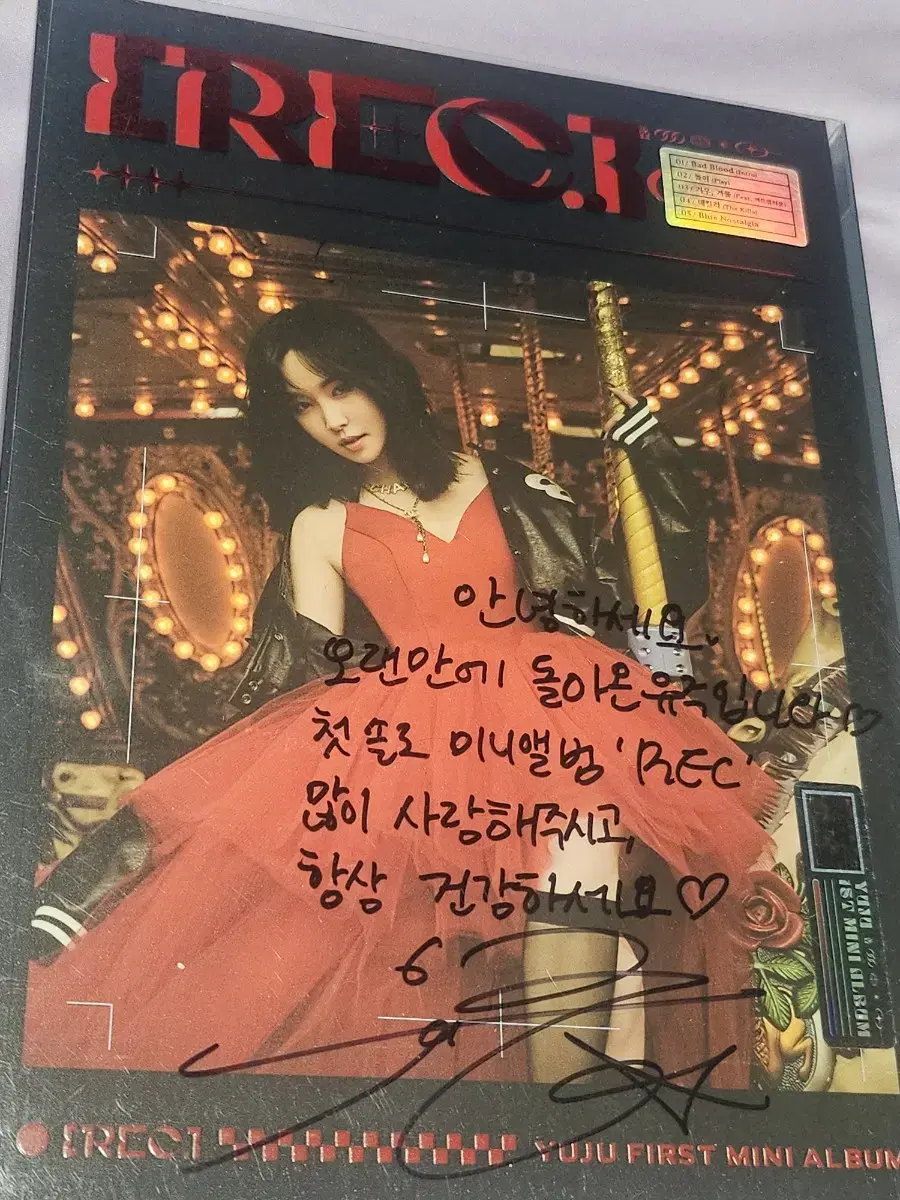 [REC.]
01/ Bad Blood (Intro)
02/ 놀이 (Play)
03/ 겨울, 겨울 (Feat. 매드클라운)
04/ 데킬라 (The Killa)
05/ Blue Nostalgia
CHA
안녕하세요.
오랜만에 돌아온 유주입니다♡
첫 솔로 미니앨범 'REC'
많이 사랑해주시고,
항상 건강하세요♡
YUJU
1ST MINI ALBUM
[REC.]
YUJU FIRST MINI ALBUM